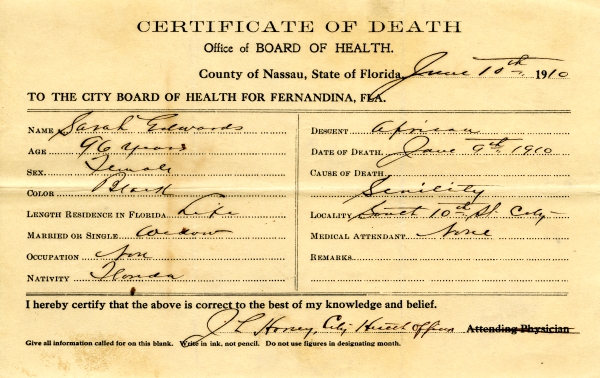 CERTIFICATE OF DEATH
Office of BOARD OF HEALTH.
County of Nassau, State of Florida, June 10th 1910
TO THE CITY BOARD OF HEALTH FOR FERNANDINA, FLA.
NAME Sarah Edwards
AGE 96 years
SEX Female
COLOR Black
LENGTH RESIDENCE IN FLORIDA Life
MARRIED OR SINGLE Widow
OCCUPATION Non
NATIVITY Florida
DESCENT African
DATE OF DEATH June 9th, 1910
CAUSE OF DEATH
Senility
LOCALITY South 10th St. City
MEDICAL ATTENDANT None
REMARKS
I hereby certify that the above is correct to the best of my knowledge and belief.
J L Horsey, City Health Officer Attending Physician
Give all information called for on this blank. Write in ink, not pencil. Do not use figures in designating month.